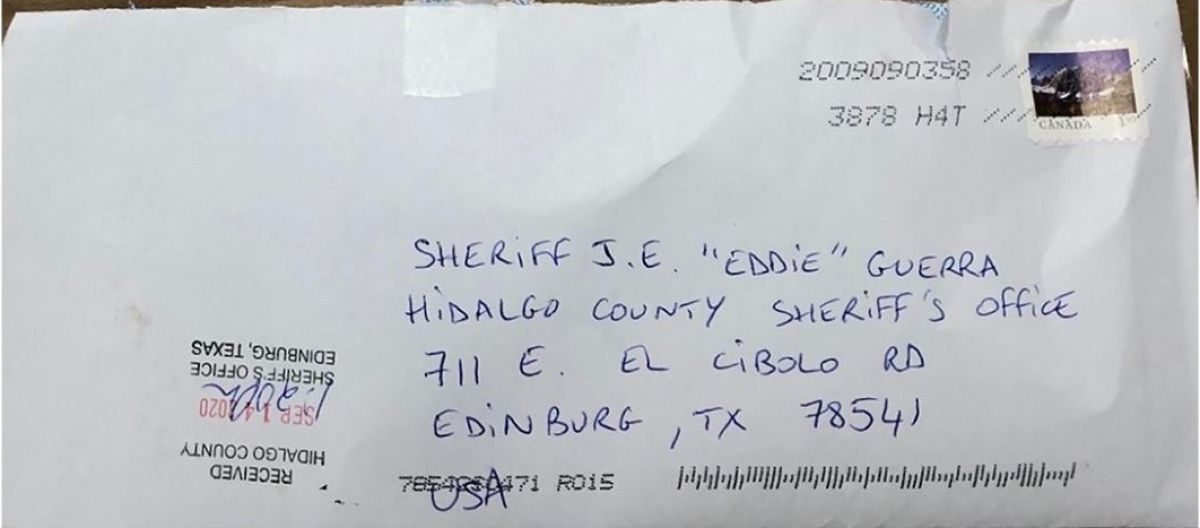 2009090358
3878 H4T
CANADA
SHERIFF J.E. "EDDIE" GUERRA
HIDALGO COUNTY SHERIFF'S OFFICE
711 E. EL CIBOLO RD
EDINBURG, TX 78541
USA
R015
RECEIVED
HIDALGO COUNTY
SEP 14 2020
SHERIFF'S OFFICE
EDINBURG, TEXAS